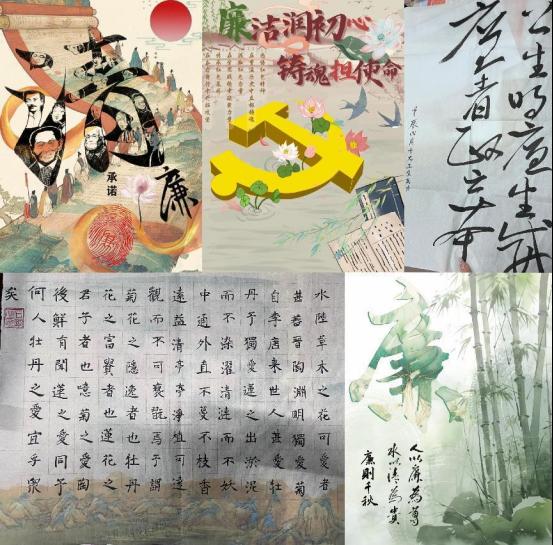 清
承诺
廉
廉洁润初心
铸魂担使命
公生明廉生威
廉者政之本
水陸草木之花可愛者
甚蕃晉陶淵明獨愛菊
自李唐来世人甚愛牡
丹予獨愛蓮之出淤泥
而不染濯清漣而不妖
中通外直不蔓不枝香
遠益清亭亭淨植可遠
觀而不可褻翫焉予謂
菊花之隱逸者也牡丹
花之富貴者也蓮花之
君子者也噫菊之愛陶
後鮮有聞蓮之愛同予
何人牡丹之愛宜乎眾
矣
廉
人以廉為尊
水以清為貴
廉則千秋